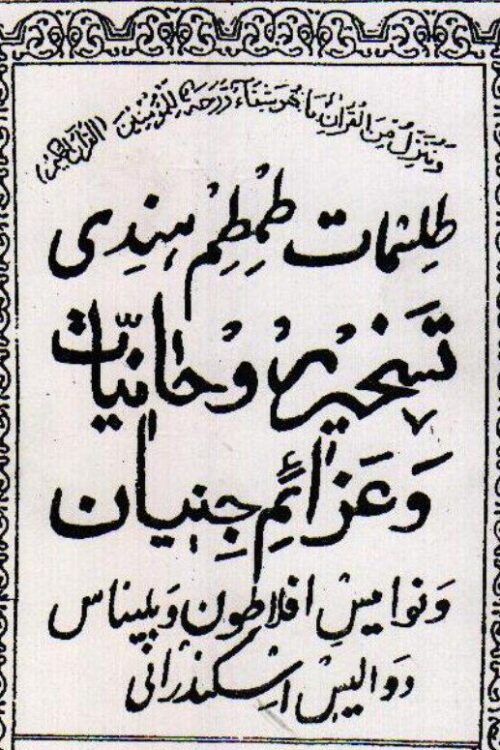 وَنُنَزِّلُ مِنَ الْقُرْآنِ مَا هُوَ شِفَاءٌ وَرَحْمَةٌ لِلْمُؤْمِنِينَ (القرآن الحكيم)
طِلِسْمَات طُمْطُم هِندِی
تَسخیرِ روحانیّات
وَعَزائمِ جِنیان
وَنوامیسِ افلاطون وَبلیناس
دوالیسِ اسکندرانی